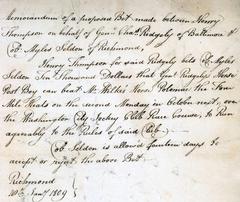 Memorandum of a proposed Bet made between Henry
Thompson on behalf of Genl. Chas. Ridgely of Baltimore &
Col. Myles Selden of Richmond,
Henry Thompson for said Ridgely bets Col. Myles
Selden Ten Thousand Dollars that Genl. Ridgelys Horse
Post Boy can beat Mr. Wilkes Horse Potomac the Four
Mile Heats on the second Monday in October next, over
the Washington City Jockey Club Race Course, to Run
agreeably to the Rules of said Club.
Col. Selden is allowed fourteen days to
accept or reject the above Bet.
Richmond
10th Jany. 1809